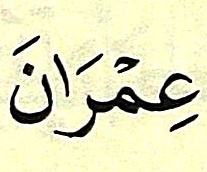 عِمْرَانَ